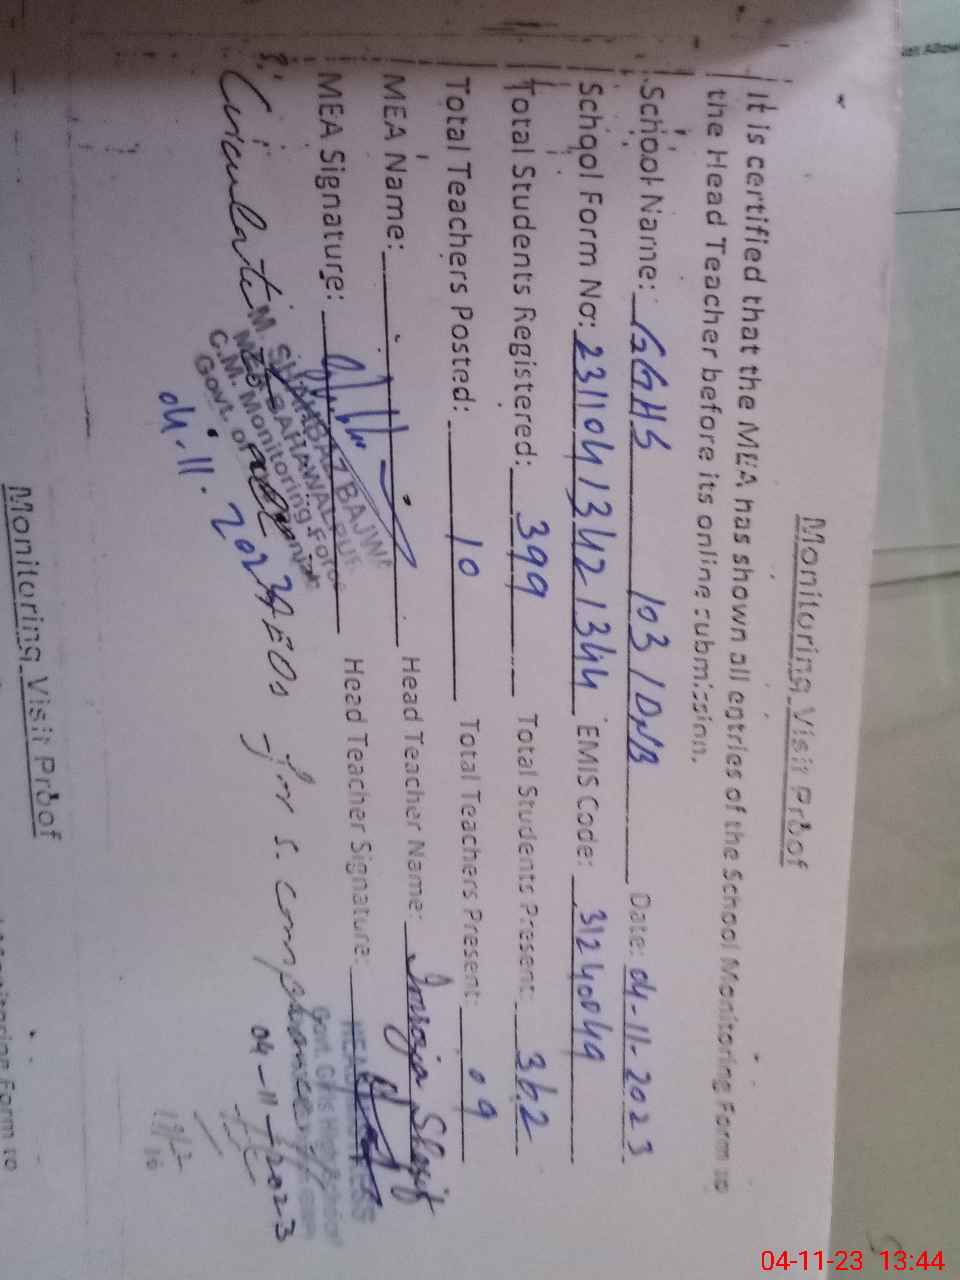 Monitoring Visit Proof
It is certified that the MEA has shown all entries of the School Monitoring Form to
the Head Teacher before its online submission.
School Name: GGHS 103/DNB Date: 04-11-2023
School Form No: 23110413421344 EMIS Code: 31240049
Total Students Registered: 399 Total Students Present: 362
Total Teachers Posted: 10 Total Teachers Present: 09
MEA Name: Head Teacher Name:
MEA Signature: Head Teacher Signature:
M. SHAHBAZ BAJWA
MEA BAHAWALPUR
C.M. Monitoring Force
Govt. of
04.11.2023
AEOs for s. compliance
04-11-2023
Monitoring Visit Proof
Monitoring Form to
04-11-23 13:44